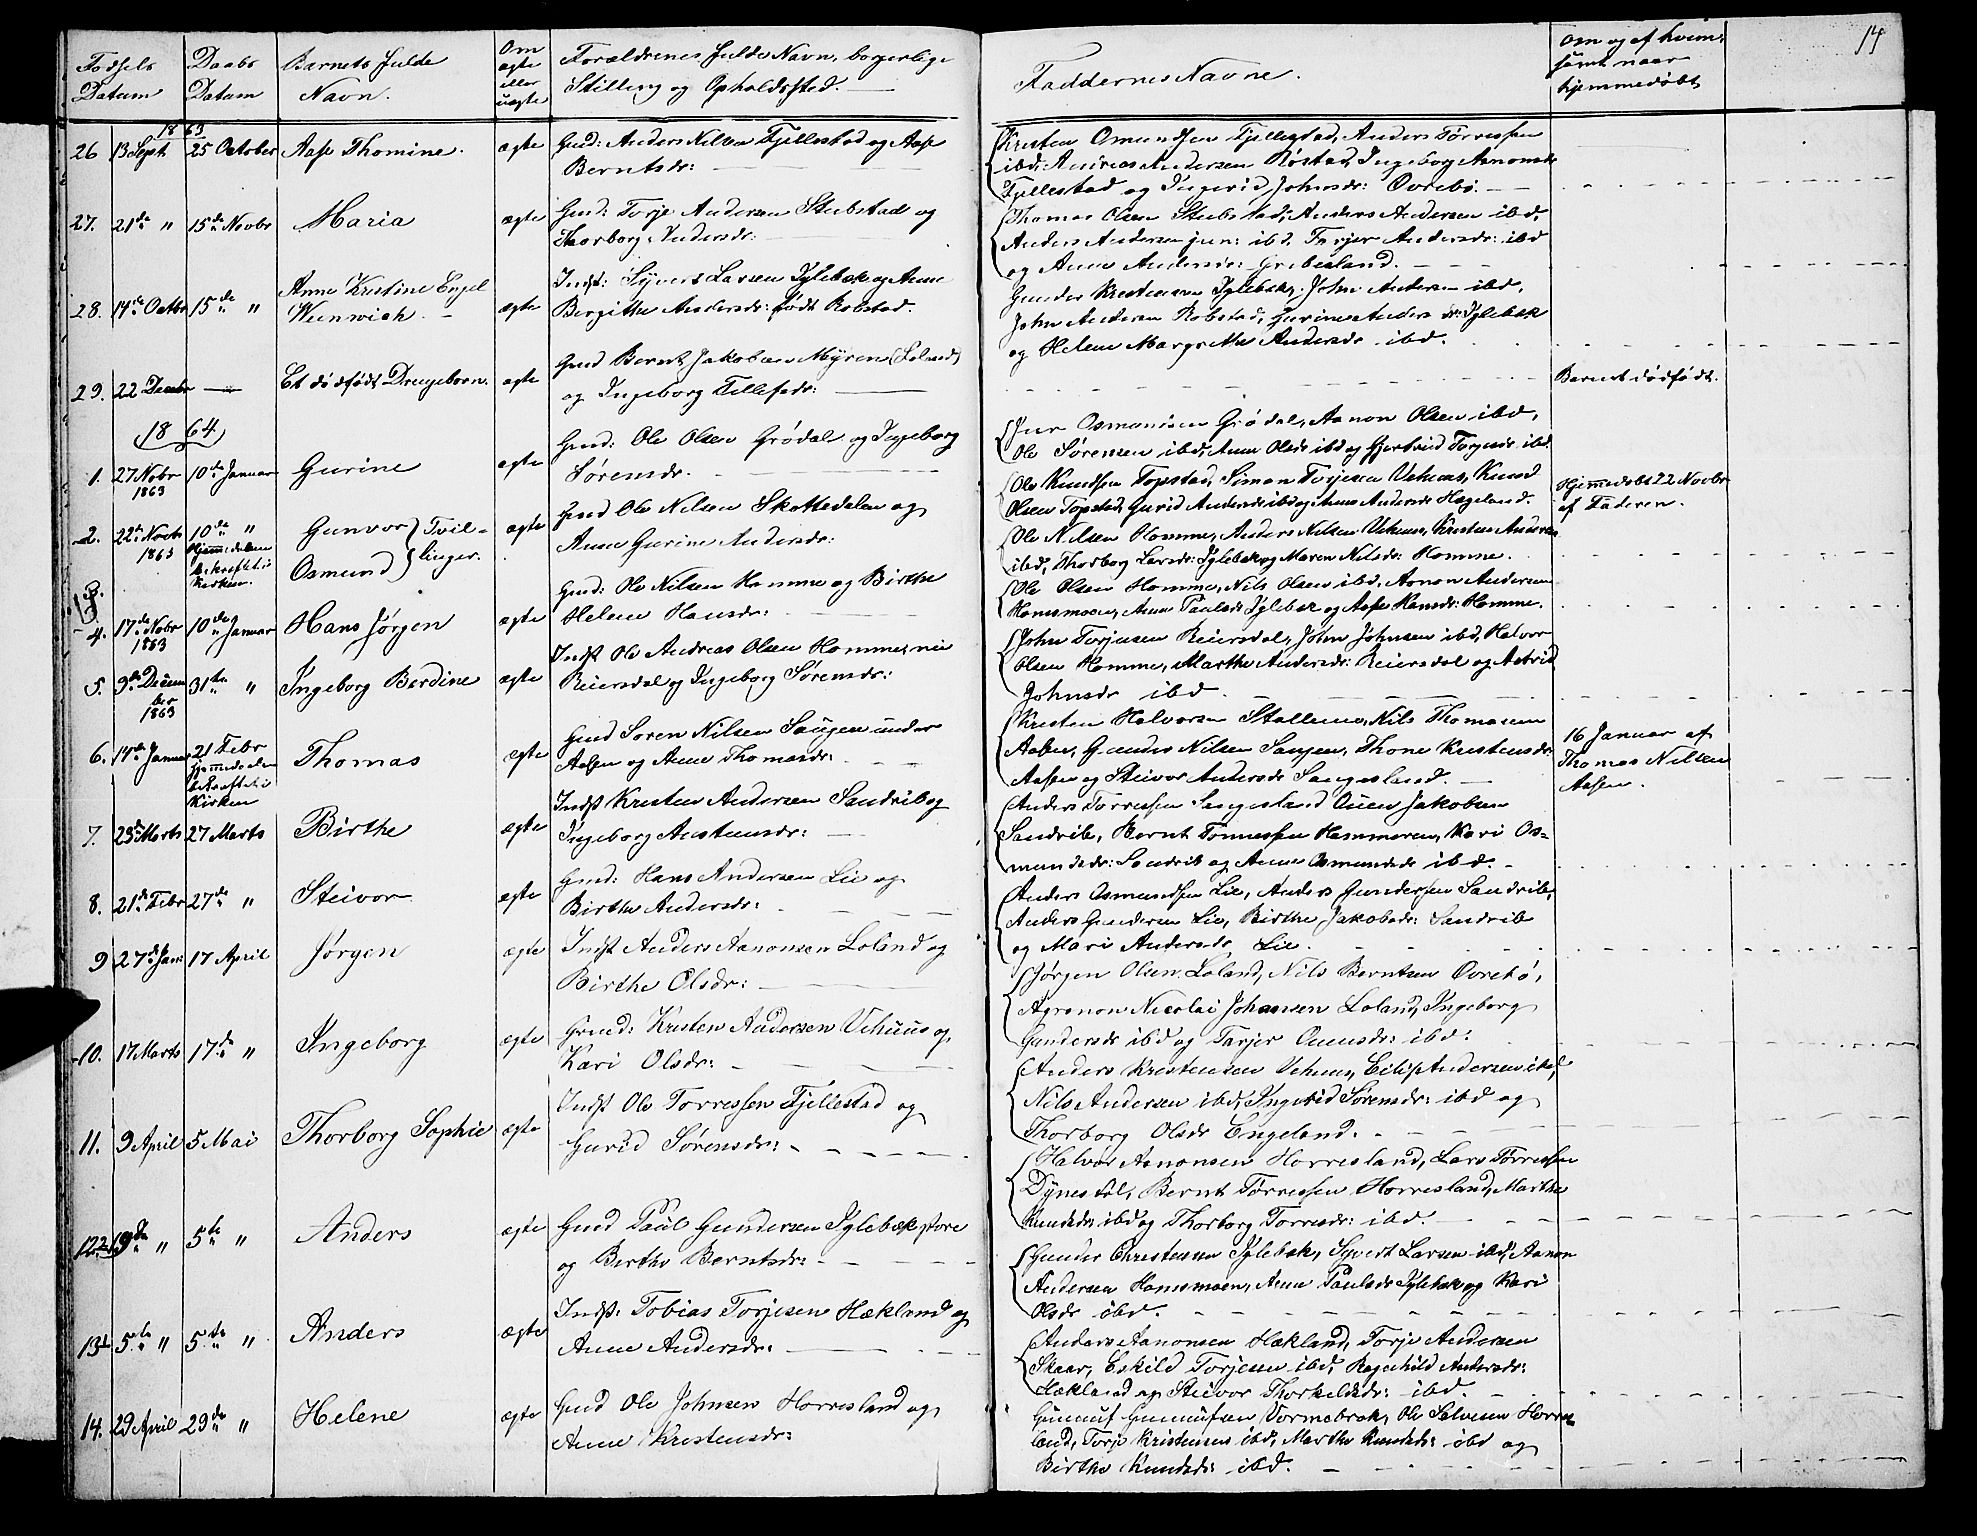 14
Fødsels Datum
Daabs Datum
Barnets fulde Navn.
Om ægte eller uægte
Forældrenes fulde Navn, borgerlige Stilling og Opholdssted.
Faddernes Navne.
Om og af hvem samt naar hjemmedøbt
1863
26 13 Sept 25 October Aase Thomine. ægte
Gmd: Anders Nilsen Fjellestad og Aase
Berntsdr:
Kristen Osmundsen Fjellestad, Anders Tørressen
ibd, Andreas Andersen Røstad, Ingeborg Aanonsdr
Fjellestad og Ingerid Johnsdr: Øvrebø.
27. 21de " 15de Novbr Maria ægte
Gmd: Torje Andersen Stubstad og
Thorborg Andersdr:
Thomas Olsen Stubstad, Anders Andersen ibd,
Anders Andersen jun: ibd, Tarjer Andersdr: ibd
og Anne Andersdr: Greibesland.
28. 14de Octbr 15de " Anne Kristine Engel
Wennwich. ægte
Indst: Syvert Larsen Iglebæk og Anne
Bergithe Andersdr: født Robstad.
Gunder Kristensen Iglebæk, John Andersen ibd,
John Andersen Robstad, Gurine Andersdr: Iglebæk
og Helene Margrethe Andersdr ibd.
29. 22 Decbr Et dødfødt Drengebarn. ægte
Gmd Bernt Jakobsen Myren (Loland)
og Ingeborg Tellefsdr:
Barnet dødfødt.
1864
1. 27 Novbr 1863 10de Januar Gurine ægte
Gmd: Ole Olsen Grødal og Ingeborg
Sørensdr.
Osmundsen Grødal, Aanon Olsen ibd,
Ole Sørensen ibd, Anne Olsdr ibd og Gjertrud Torjesdr ibd.
2. 22de Novb 1863 10de " Hjemmedaaben bekræftet i Kirken.
3.
Gunvor
Osmund
Tvillinger. ægte
Gmd Ole Nilsen Skottedalen og
Anne Gurine Andersdr:
Ole Knudsen Topstad, Simon Torjesen Vehuus, Knud
Olsen Topstad, Gurid Andersdr ibd og Anne Andersdr Hægeland.
Ole Nilsen Homme, Anders Nilsen Vehuus, Kristen Andersen
ibd, Thorborg Larsdr: Iglebæk og Maren Nilsdr: Homme.
Hjemmedøbt 22 Novbr
af Faderen.
4. 17de Novbr 1863 10de Januar Hans Jørgen ægte
Gmd: Ole Nilsen Homme og Birthe
Helene Hansdr:
Ole Olsen Homme, Nils Olsen ibd, Aanon Andersen
Homsmoen, Anne Paulsdr Iglebæk og Aase Hansdr: Homme.
5. 9de December 1863 31te " Ingeborg Berdine ægte
Indst Ole Andreas Olsen Homme
Reiersdal og Ingeborg Sørensdr:
John Torjusen Reiersdal, John Johnsen ibd, Halvor
Olsen Homme, Marthe Andersdr: Reiersdal og Astrid
Johnsdr ibd.
6. 14de Januar 21 Febr Hjemmedaaben bekræftet i Kirken Thomas ægte
Gmd Soren Nilsen Saugen under
Aasen og Anne Thomasdr:
Kristen Halvorsen Stallemo, Nils Thomasen
Aasen, Gunder Nilsen Saugen, Thone Kristensdr
Aasen og Steivor Andersdr Sangesland.
16 Januar af
Thomas Nilsen
Aasen.
7. 28de Marts 27 Marts Birthe ægte
Indst Kristen Andersen Sandrib og
Ingeborg Austensdr:
Anders Torressen Sangesland, Ouen Jakobsen
Sandrib, Bernt Tønnessen Hammeren, Kari Os-
mundsdr: Sandrib og Anne Osmundsdr ibd.
8. 21de Febr 27de " Steivor ægte
Gmd: Hans Andersen Lie og
Birthe Andersdr:
Anders Osmundsen Lie, Anders Gundersen Sandrib,
Anders Gundersen Lie, Birthe Jakobsdr: Sandrib
og Mari Andersdr Lie.
9 27de Jan: 17 April Jørgen ægte
Indst Anders Aanonsen Loland og
Birthe Olsdr:
Jørgen Olsen Loland, Nils Berntsen Øvrebø,
Agronom Nicolai Johansen Loland, Ingeborg
Gundersdr ibd og Tarjer Ouensdr: ibd:
10. 17 Marts 17de " Ingeborg ægte
Gmd: Kristen Andersen Vehuus og
Kari Olsdr:
Anders Kristensen Vehuus, Eilif Andersen ibd,
Nils Andersen ibd, Ingerid Sørensdr: ibd og
Thorborg Olsdr Engeland.
11. 9 April 5 Mai Thorborg Sophie ægte
Indst Ole Torressen Fjellestad og
Gurid Sørensdr:
Halvor Aanonsen Horresland, Lars Tørressen
Dynestøl, Bernt Tørressen Horresland, Marthe
Knudsdr: ibd og Thorborg Torresdr: ibd.
12. 19de " 5te " Anders ægte
Gmd Paul Gundersen Iglebæk store
og Berthe Berntsdr:
Gunder Christensen Iglebæk, Syvert Larsen ibd, Aanon
Andersen Homsmoen, Anne Paulsdr Iglebæk og Kari
Olsdr ibd.
13. 5te " 5te " Anders ægte
Indst: Tobias Torjesen Hækland og
Anne Andersdr:
Anders Aanonsen Hækland, Torje Andersen
Skaar, Eskild Torjesen ibd, Ragnhild Andersdr:
Hækland og Steivor Thorkeldsdr: ibd.
14. 29 April 29de " Helene ægte
Gmd Ole Johnsen Horresland og
Anne Kristensdr:
Gunnuf Gunnufsen Vormebrok, Ole Salvesen Horres-
land, Torje Kristensen ibd, Marthe Knudsdr: ibd og
Birthe Knudsdr ibd.